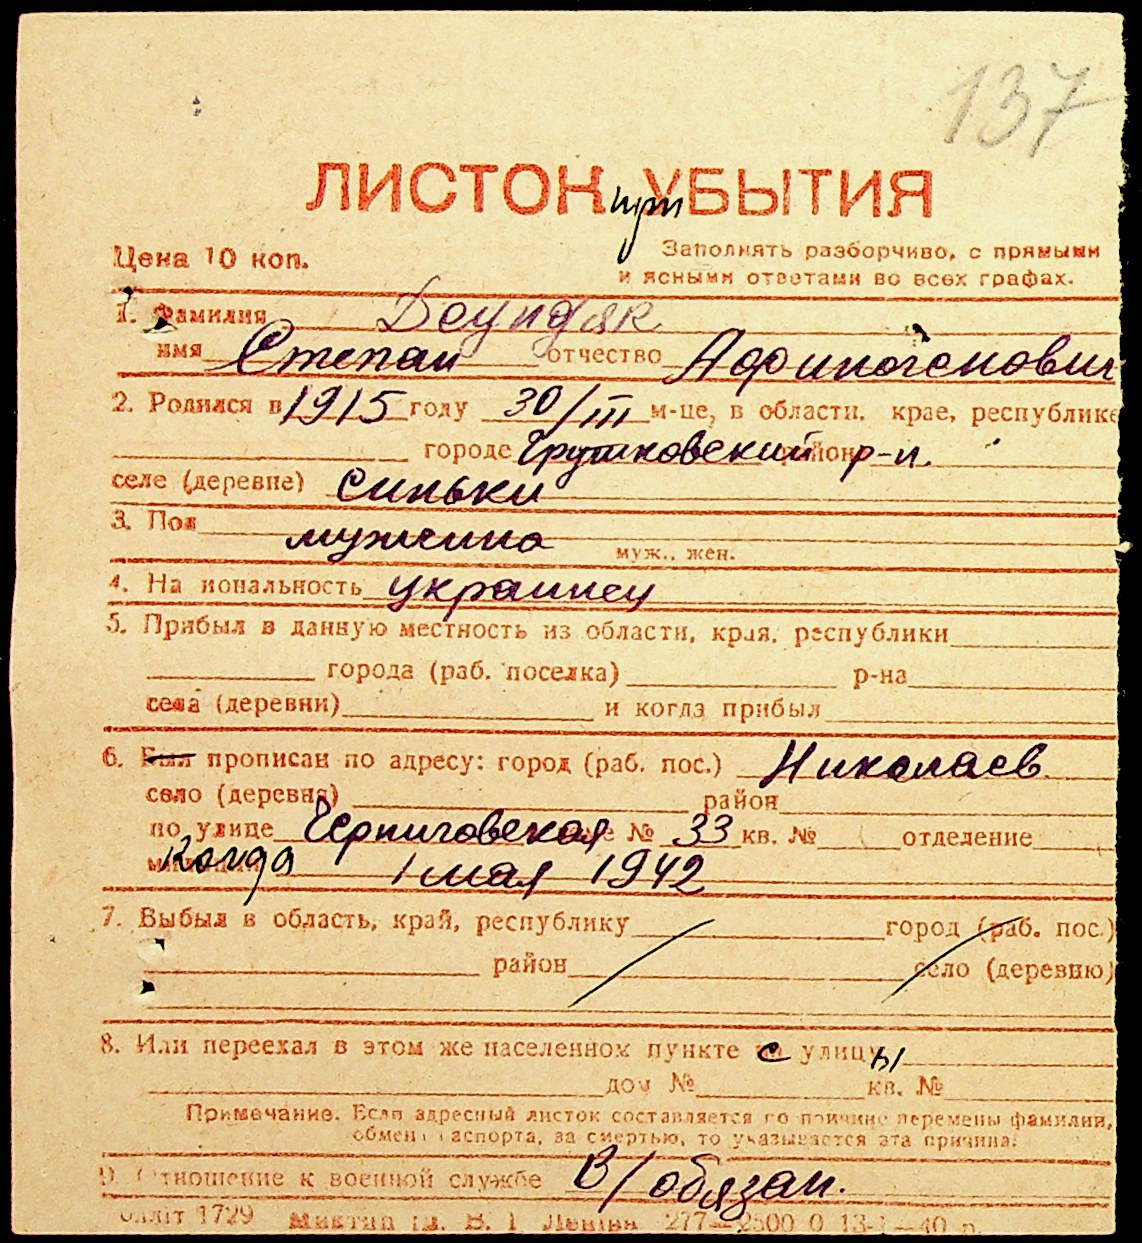 137
ЛИСТОК при УБЫТИЯ
Цена 10 коп.
Заполнять разборчиво, с прямыми
и ясными ответами во всех графах.
1. Фамилия Деундяк
имя Степан отчество Афиногенович
2. Родился в 1915 году 30/III м-це, в области, крае, республике
городе Грушковский районе р-н.
селе (деревне) Синьки
3. Пол мужчина
муж., жен.
4. Национальность украинец
5. Прибыл в данную местность из области, края, республики
города (раб. поселка) р-на
села (деревни) и когда прибыл
6. Был прописан по адресу: город (раб. пос.) Николаев
село (деревня) район
по улице Черниговская № 33 кв. № отделение
милиции Когда 1 мая 1942
7. Выбыл в область, край, республику город (раб. пос.)
район село (деревню)
8. Или переехал в этом же населенном пункте с улицы
дом № кв. №
Примечание. Если адресный листок составляется по причине перемены фамилии,
обмена паспорта, за смертью, то указывается эта причина.
9. Отношение к военной службе В/обязан.
1729 В. І. Леніна 277—2500 0 13- —40 р.